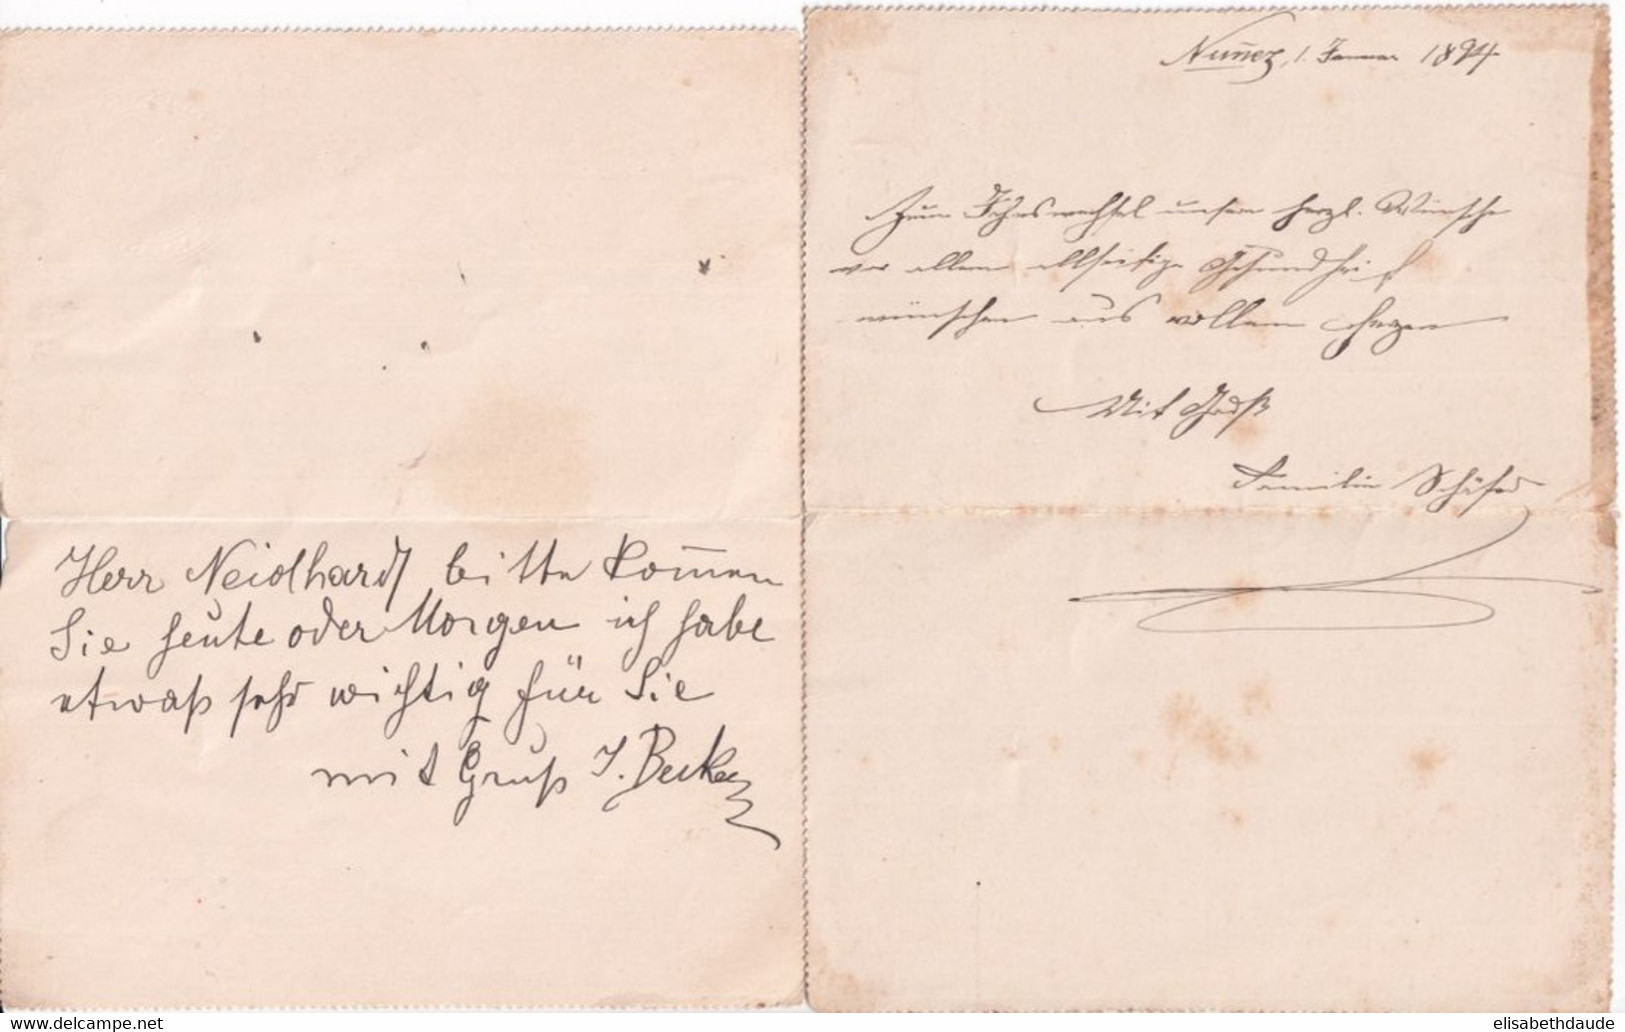 Herr Neidhardt bitte komen
Sie heute oder Morgen ich habe
etwaß sehr wichtig für Sie
mit Gruß J. Becker
Nuñez, 1. Januar 1894
Zum Jahreswechsel unsere herzl. Wünsche
vor allem allseitige Gesundheit
wünschen aus vollem Herzen
Mit Gruß
Familie Schäfer
www.delcampe.net
elisabethdaude